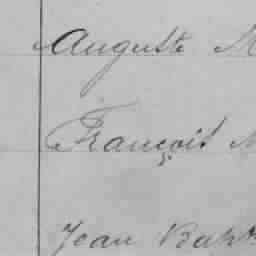 Auguste M
François M
Jean Bapt